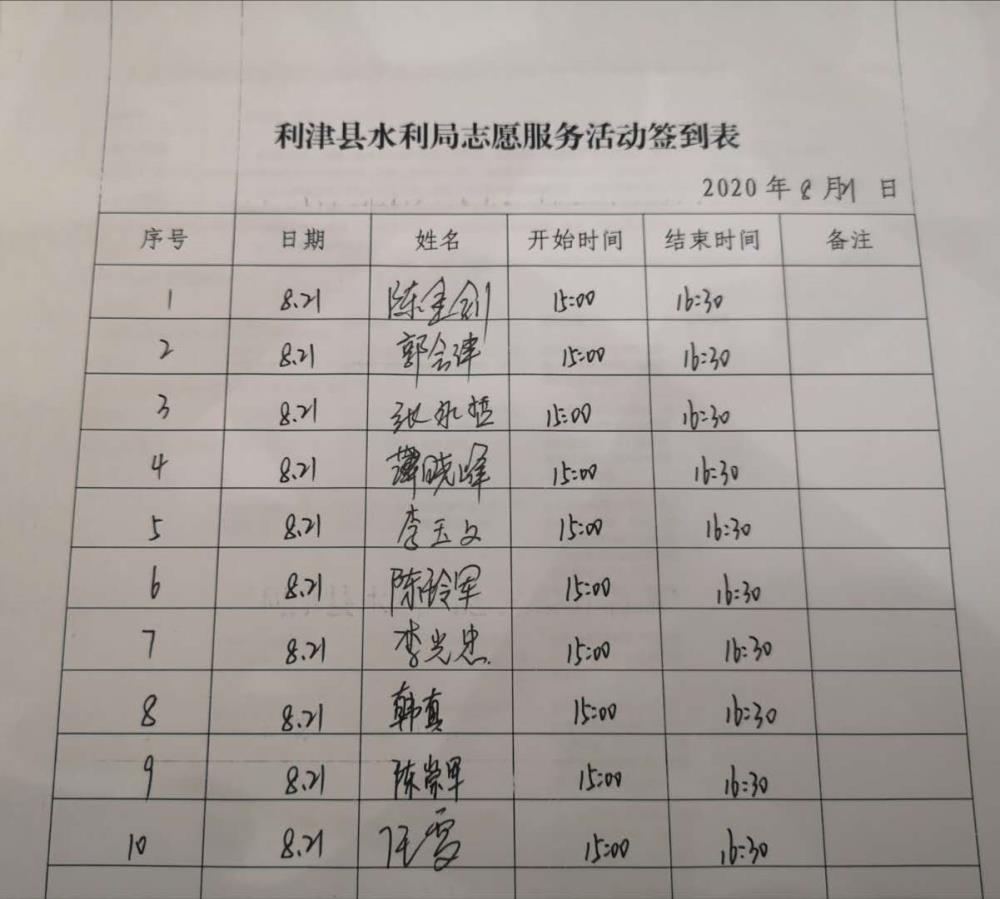 利津县水利局志愿服务活动签到表
2020 年 8 月21 日
序号 日期 姓名 开始时间 结束时间 备注
1 8.21 陈金剑 15:00 16:30
2 8.21 郭会津 15:00 16:30
3 8.21 张永哲 15:00 16:30
4 8.21 薄晓峰 15:00 16:30
5 8.21 李玉文 15:00 16:30
6 8.21 陈玲军 15:00 16:30
7 8.21 李光忠 15:00 16:30
8 8.21 韩真 15:00 16:30
9 8.21 陈崇军 15:00 16:30
10 8.21 任雯 15:00 16:30